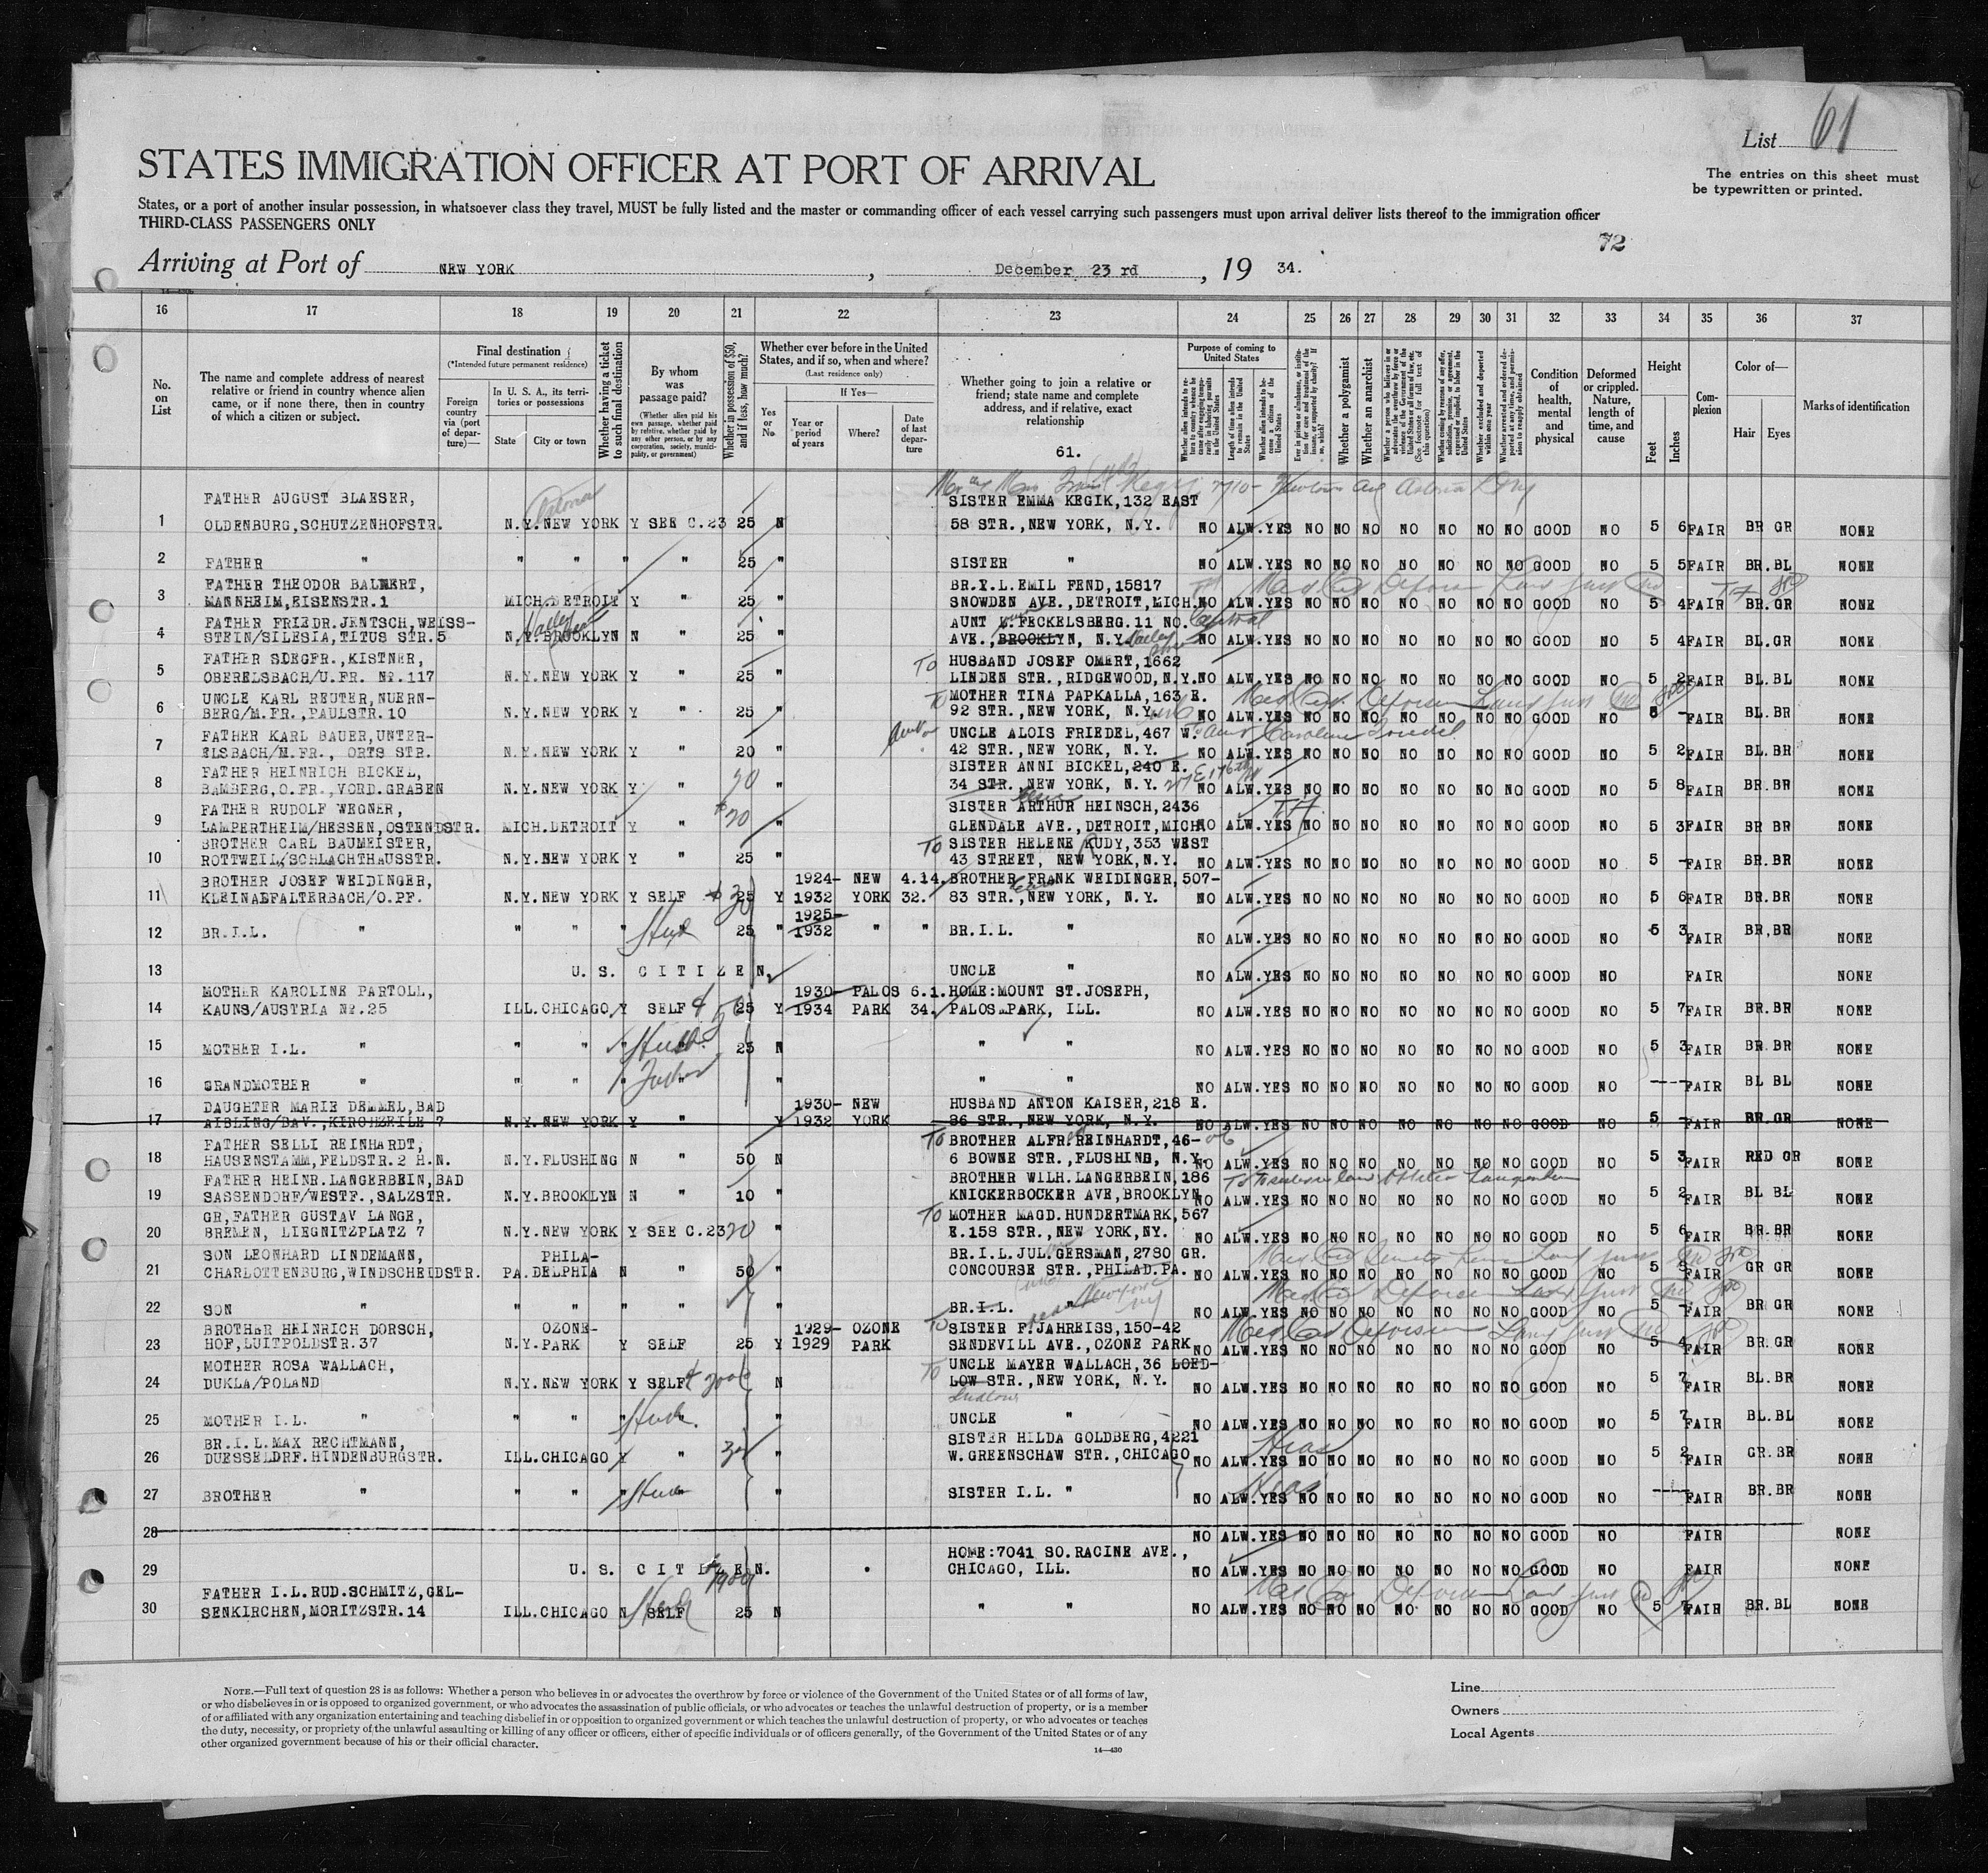 List 61
The entries on this sheet must
be typewritten or printed.
STATES IMMIGRATION OFFICER AT PORT OF ARRIVAL
States, or a port of another insular possession, in whatsoever class they travel, MUST be fully listed and the master or commanding officer of each vessel carrying such passengers must upon arrival deliver lists thereof to the immigration officer
THIRD-CLASS PASSENGERS ONLY
72
Arriving at Port of NEW YORK, December 23 rd, 19 34.
16 17 18 19 20 21 22 23 24 25 26 27 28 29 30 31 32 33 34 35 36 37
No. on List
The name and complete address of nearest relative or friend in country whence alien came, or if none there, then in country of which a citizen or subject.
Final destination
(*Intended future permanent residence)
Foreign country via (port of departure)—
In U. S. A., its territories or possessions
State
City or town
Whether having a ticket to such final destination
By whom was passage paid?
(Whether alien paid his own passage, whether paid by relative, whether paid by any other person, or by any corporation, society, municipality, or government)
Whether in possession of $50, and if less, how much?
Whether ever before in the United States, and if so, when and where?
(Last residence only)
Yes or No
If Yes—
Year or period of years
Where?
Date of last departure
Whether going to join a relative or friend; state name and complete address, and if relative, exact relationship
61.
Purpose of coming to United States
Length of time alien intends to remain in the United States
Whether alien intends to become a citizen of the United States
Whether a polygamist
Whether an anarchist
Condition of health, mental and physical
Deformed or crippled. Nature, length of time, and cause
Height
Feet
Inches
Complexion
Color of—
Hair
Eyes
Marks of identification
FATHER AUGUST BLAESER, SISTER EMMA KEGIK, 132 EAST
1 OLDENBURG, SCHUTZENHOFSTR. N.Y. NEW YORK Y SEE C.23 25 N 58 STR., NEW YORK, N.Y. NO ALW. YES NO NO NO NO NO NO NO GOOD NO 5 6 FAIR BR GR NONE
2 FATHER " " " " " 25 " SISTER " NO ALW. YES NO NO NO NO NO NO NO GOOD NO 5 5 FAIR BR. BL NONE
FATHER THEODOR BALMERT, BR.I.L. EMIL FEND, 15817
3 MANNHEIM, EISENSTR. 1 MICH. DETROIT Y " 25 " SNOWDEN AVE., DETROIT, MICH. NO ALW. YES NO NO NO NO NO NO NO GOOD NO 5 4 FAIR BR. GR NONE
FATHER FRIEDR. JENTSCH, WEISS- AUNT E. FECKELSBERG. 11 NO.
4 STEIN/SILESIA, TITUS STR. 5 N.Y. BROOKLYN N " 25 " AVE., BROOKLYN, N.Y. NO ALW. YES NO NO NO NO NO NO NO GOOD NO 5 4 FAIR BL. GR NONE
FATHER SIEGFR., KISTNER, To HUSBAND JOSEF OMERT, 1662
5 OBERELSBACH/U.FR. Nr. 117 N.Y. NEW YORK Y " 25 " LINDEN STR., RIDGEWOOD, N.Y. NO ALW. YES NO NO NO NO NO NO NO GOOD NO 5 2 FAIR BL. BL NONE
UNCLE KARL REUTER, NUERN- To MOTHER TINA PAPKALLA, 163 E.
6 BERG/M.FR., PAULSTR. 10 N.Y. NEW YORK Y " 25 " 92 STR., NEW YORK, N.Y. NO ALW. YES NO NO NO NO NO NO NO GOOD NO 5 - FAIR BL. BR NONE
FATHER KARL BAUER, UNTER- UNCLE ALOIS FRIEDEL, 467 W.
7 ELSBACH/M.FR., ORTS STR. N.Y. NEW YORK Y " 20 " 42 STR., NEW YORK, N.Y. NO ALW. YES NO NO NO NO NO NO NO GOOD NO 5 2 FAIR BL. BR NONE
FATHER HEINRICH BICKEL, SISTER ANNI BICKEL, 240 E.
8 BAMBERG, O.FR., VORD. GRABEN N.Y. NEW YORK Y " 20 " 34 STR., NEW YORK, N.Y. 217 E 176th NO ALW. YES NO NO NO NO NO NO NO GOOD NO 5 8 FAIR BR. BR NONE
FATHER RUDOLF WEGNER, SISTER ARTHUR HEINSCH, 2436
9 LAMPERTHEIM/HESSEN, OSTENDSTR. MICH. DETROIT Y " 20 " GLENDALE AVE., DETROIT, MICH. NO ALW. YES NO NO NO NO NO NO NO GOOD NO 5 3 FAIR BR BR NONE
BROTHER CARL BAUMEISTER, To SISTER HELENE KUDY, 353 WEST
10 ROTTWEIL, SCHLACHTHAUSSTR. N.Y. NEW YORK Y " 25 " 43 STREET, NEW YORK, N.Y. NO ALW. YES NO NO NO NO NO NO NO GOOD NO 5 - FAIR BR. BR NONE
BROTHER JOSEF WEIDINGER, 1924- NEW 4.14. BROTHER FRANK WEIDINGER, 507-
11 KLEINALFALTERBACH/O.PF. N.Y. NEW YORK Y SELF 25 Y 1932 YORK 32. 83 STR., NEW YORK, N.Y. NO ALW. YES NO NO NO NO NO NO NO GOOD NO 5 6 FAIR BR. BR NONE
1925-
12 BR.I.L. " " " " 25 " 1932 " " BR.I.L. " NO ALW. YES NO NO NO NO NO NO NO GOOD NO 5 3 FAIR BR, BR NONE
13 U. S. CITIZEN. UNCLE " NO ALW. YES NO NO NO NO NO NO NO GOOD NO FAIR NONE
MOTHER KAROLINE PARTOLL, 1930- PALOS 6.1. HOME: MOUNT ST. JOSEPH,
14 KAUNS/AUSTRIA Nr. 25 ILL. CHICAGO Y SELF 25 Y 1934 PARK 34. PALOS PARK, ILL. NO ALW. YES NO NO NO NO NO NO NO GOOD NO 5 7 FAIR BR. BR NONE
15 MOTHER I.L. " " " " 25 N " " NO ALW. YES NO NO NO NO NO NO NO GOOD NO 5 3 FAIR BR. BR NONE
16 GRANDMOTHER " " " " " " " " NO ALW. YES NO NO NO NO NO NO NO GOOD NO ---- FAIR BL BL NONE
DAUGHTER MARIE DEMMEL, BAD 1930- NEW HUSBAND ANTON KAISER, 218 E.
17 AIBLING/BAV., KIRCHZEILE 7 N.Y. NEW YORK Y " Y 1932 YORK 86 STR., NEW YORK, N.Y. NO ALW. YES NO NO NO NO NO NO NO GOOD NO 5 - FAIR BR. GR NONE
FATHER SELLI REINHARDT, To BROTHER ALFR. REINHARDT, 46-
18 HAUSENSTAMM, FELDSTR. 2 H.N. N.Y. FLUSHING N " 50 N 6 BOWNE STR., FLUSHING, N.Y. NO ALW. YES NO NO NO NO NO NO NO GOOD NO 5 3 FAIR RED GR NONE
FATHER HEINR. LANGERBEIN, BAD BROTHER WILH. LANGERBEIN, 186
19 SASSENDORF/WESTF., SALZSTR. N.Y. BROOKLYN N " 10 " KNICKERBOCKER AVE, BROOKLYN NO ALW. YES NO NO NO NO NO NO NO GOOD NO 5 2 FAIR BL BL NONE
GR, FATHER GUSTAV LANGE, To MOTHER MAGD. HUNDERTMARK, 567
20 BREMEN, LIEGNITZPLATZ 7 N.Y. NEW YORK Y SEE C.23 20 " E. 158 STR., NEW YORK, NY. NO ALW. YES NO NO NO NO NO NO NO GOOD NO 5 6 FAIR BR. BR NONE
SON LEONHARD LINDEMANN, PHILA- BR.I.L. JUL. GERSMAN, 2780 GR.
21 CHARLOTTENBURG, WINDSCHEIDSTR. PA. DELPHIA N " 50 " CONCOURSE STR., PHILAD. PA. NO ALW. YES NO NO NO NO NO NO NO GOOD NO 5 FAIR GR GR NONE
22 SON " " " " " " BR.I.L. " NO ALW. YES NO NO NO NO NO NO NO GOOD NO 5 - FAIR BR GR NONE
BROTHER HEINRICH DORSCH, OZONE- 1929- OZONE To SISTER F. JAHREISS, 150-42
23 HOF, LUITPOLDSTR. 37 N.Y. PARK Y SELF 25 Y 1929 PARK SENDEVILL AVE., OZONE PARK NO ALW. YES NO NO NO NO NO NO NO GOOD NO 5 4 FAIR BR. GR NONE
MOTHER ROSA WALLACH, To UNCLE MAYER WALLACH, 36 LOED-
24 DUKLA/POLAND N.Y. NEW YORK Y SELF N LOW STR., NEW YORK, N.Y. NO ALW. YES NO NO NO NO NO NO NO GOOD NO 5 7 FAIR BL. BR NONE
Ludlow
25 MOTHER I.L. " " " " " UNCLE " NO ALW. YES NO NO NO NO NO NO NO GOOD NO 5 7 FAIR BL. BL NONE
BR.I.L. MAX RECHTMANN, SISTER HILDA GOLDBERG, 4221
26 DUESSELDRF. HINDENBURGSTR. ILL. CHICAGO Y " " W. GREENSCHAW STR., CHICAGO Hias NO ALW. YES NO NO NO NO NO NO NO GOOD NO 5 2 FAIR GR. BR NONE
27 BROTHER " " " " " SISTER I.L. " Hias NO ALW. YES NO NO NO NO NO NO NO GOOD NO ---- FAIR BR. BR NONE
28 NO ALW. YES NO NO NO NO NO NO NO GOOD NO FAIR NONE
HOME: 7041 SO. RACINE AVE.,
29 U. S. CITIZEN. CHICAGO, ILL. NO ALW. YES NO NO NO NO NO NO NO GOOD NO FAIR NONE
FATHER I.L. RUD. SCHMITZ, GEL-
30 SENKIRCHEN, MORITZSTR. 14 ILL. CHICAGO N SELF 25 N " " NO ALW. YES NO NO NO NO NO NO NO GOOD NO 5 7 FAIR BR. BL NONE
NOTE.—Full text of question 28 is as follows: Whether a person who believes in or advocates the overthrow by force or violence of the Government of the United States or of all forms of law,
or who disbelieves in or is opposed to organized government, or who advocates the assassination of public officials, or who advocates or teaches the unlawful destruction of property, or is a member
of or affiliated with any organization entertaining and teaching disbelief in or opposition to organized government or which teaches the unlawful destruction of property, or who advocates or teaches
the duty, necessity, or propriety of the unlawful assaulting or killing of any officer or officers, either of specific individuals or of officers generally, of the Government of the United States or of any
other organized government because of his or their official character.
14—430
Line
Owners
Local Agents